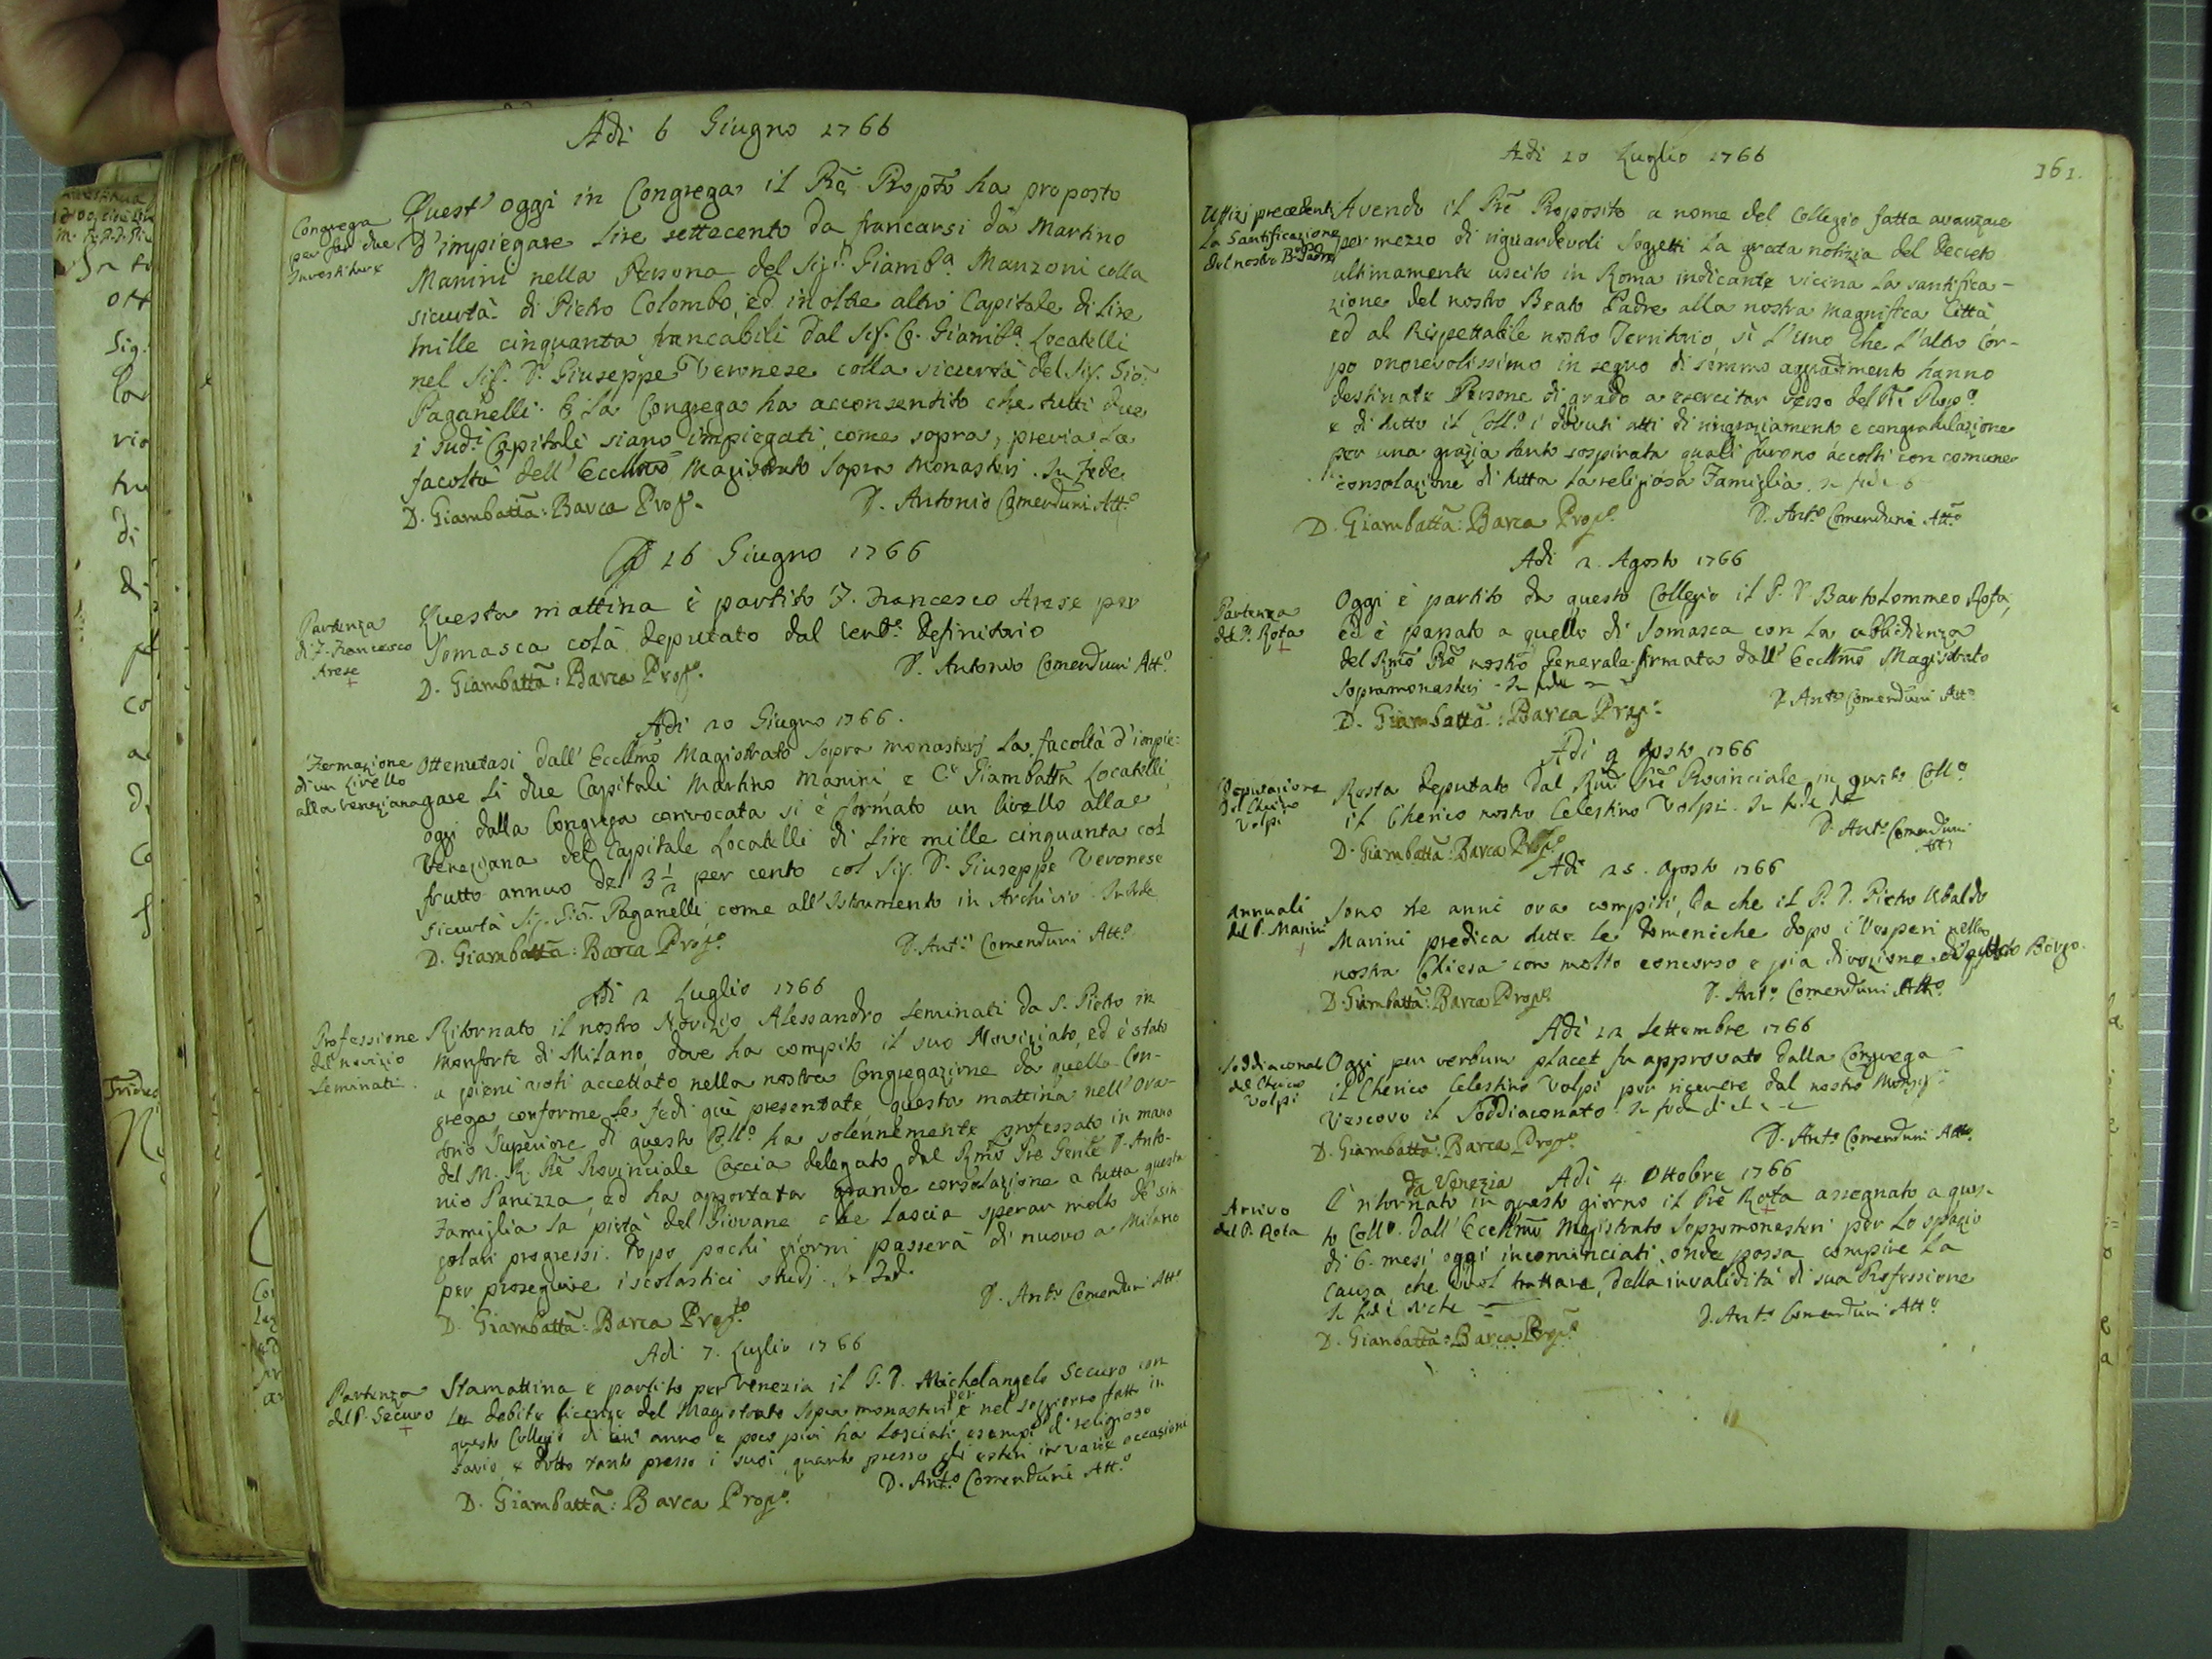 Adi 6 Giugno 1766
Congrega
per far due
Investiture
Quest' oggi in Congrega il Rē Propto ha proposto
d'impiegare Lire settecento da francarsi da Martino
Manini nella Persona del Sigr Giamba Manzoni colla
sicurtà di Pietro Colombo, ed in oltre altro Capitale di Lire
mille cinquanta francabili dal Sig. Co. Giamba Locatelli
nel Sig. Dr Giuseppe Veronese colla sicurtà del Sig. Gio:
Paganelli. E la Congrega ha acconsentito che tutti due
i sudi Capitali siano impiegati come sopra, previa la
facoltà dell' Eccllmo Magistrato Sopra Monasterj. In Fede
D. Giambatta: Barca Propo
D. Antonio Comenduni Atto
16 Giugno 1766
Partenza
di F. Francesco
Arese
Questa mattina è partito F. Francesco Arese per
Somasca colà deputato dal Vendo Definitorio
D. Giambatta: Barca Propo
D. Antonio Comenduni Atto
Adi 20 Giugno 1766.
Formazione
di un Livello
alla Veneziana
Ottenutasi dall' Eccllmo Magistrato Sopra monasterj la facoltà d'impie:
gare li due Capitali Martino Manini e Ce Giambatta Locatelli,
oggi dalla Congrega convocata si è formato un livello alla
Veneziana del Capitale Locatelli di Lire mille cinquanta col
frutto annuo de 3 1/2 per cento col Sig. Dr Giuseppe Veronese
sicurtà Sig. Gio: Paganelli come all' Istrumento in Archivio. In Fede
D. Giambatta: Barca Propo
D. Anto Comenduni Atto
Adi 2 Luglio 1766
Professione
del novizio
Seminati.
Ritornato il nostro Novizio Alessandro Seminati da S. Pietro in
Monforte di Milano, dove ha compito il suo Noviziato, ed è stato
a pieni voti accettato nella nostra Congregazione da quella Con-
grega conforme le fedi quì presentate, questa mattina nell' Ora-
torio Superiore di questo Collo ha solennemente professato in mano
del M. R. Rē Provinciale Caccia delegato dal Rmo Pre Genle D. Anto-
nio Panizza, ed ha apportata grande consolazione a tutta questa
Famiglia la pietà del Giovane che lascia sperar molto de' sin-
golari progressi. Dopo pochi giorni passerà di nuovo a Milano
per proseguire i scolastici studj. In Fede
D. Giambatta: Barca Propto
D. Anto Comenduni Atto
Adi 7. Luglio 1766
Partenza
del P. Securo
Stamattina è partito per Venezia il P. D. Michelangelo Securo con
le debite licenze del Magistrato Sopra monasteri e per nel soggiorno fatto in
questo Collegio di un' anno e poco più ha lasciati esempi di religioso
savio, e dotto tanto presso i suoi, quanto presso gli esteri in varie occasioni
D. Giambatta: Barca Propo
D. Anto Comenduni Atto
161.
Adi 20 Luglio 1766
Uffizj precedenti
la Santificazione
del nostro Bto Padre
Avendo il Prē Proposito a nome del Collegio fatta avanzare
per mezzo di riguardevoli Soggetti la grata notizia del Decreto
ultimamente uscito in Roma indicante vicina la santifica-
zione del nostro Beato Padre alla nostra magnifica Città
ed al Rispettabile nostro Territorio, sì l'uno che l'altro Cor-
po onorevolissimo in segno di sommo aggradimento hanno
destinate Persone di grado a esercitar verso del Prē Propo
e di tutto il Collo i dovuti atti di ringraziamento e congratulazione
per una grazia tanto sospirata quali furono accolti con comune
consolazione di tutta la religiosa Famiglia. In fede
D. Giambatta: Barca Propo
D. Anto Comenduni Atto
Adi 2. Agosto 1766
Partenza
del P. Rota
Oggi è partito da questo Collegio il P. D. Bartolommeo Rota,
ed è passato a quello di Somasca con la obbidienza
del Rmo Prē nostro Generale firmata dall' Eccllmo Magistrato
Sopramonasterj - In fede
D. Giambatta: Barca Propo
D. Anto Comenduni Atto
Adi 9 Agosto 1766
Deputazione
del Cherico
Volpi
Resta deputato dal Rmo Prē Provinciale in questo Collo
il Cherico nostro Celestino Volpi. In fede
D. Giambatta: Barca Propo
D. Anto Comenduni
Atto
Adi 25. Agosto 1766
Annuali
del P. Marini
Sono tre anni ora compiti, da che il P. D. Pietro Ubaldo
Marini predica tutte le Domeniche dopo i Vesperi nella
nostra Chiesa con molto concorso e pia divozione di questo Borgo.
D. Giambatta: Barca Propo
D. Anto Comenduni Atto
Adi 12 Settembre 1766
Soddiaconato
del Cherico
Volpi
Oggi per verbum placet fu approvato dalla Congrega
il Cherico Celestino Volpi per ricevere dal nostro Monsigr
Vescovo il Soddiaconato. In fede
D. Giambatta: Barca Propo
D. Anto Comenduni Atto
Adi 4. Ottobre 1766
Arrivo
del P. Rota
da Venezia
È ritornato in questo giorno il Prē Rota assegnato a ques-
to Collo dall' Eccellmo Magistrato Sopramonasteri per lo spazio
di 6. mesi oggi incominciati, onde possa compire la
causa, che vuol trattare, della invalidità di sua Professione
In fede
D. Giambatta: Barca Propo
D. Anto Comenduni Atto